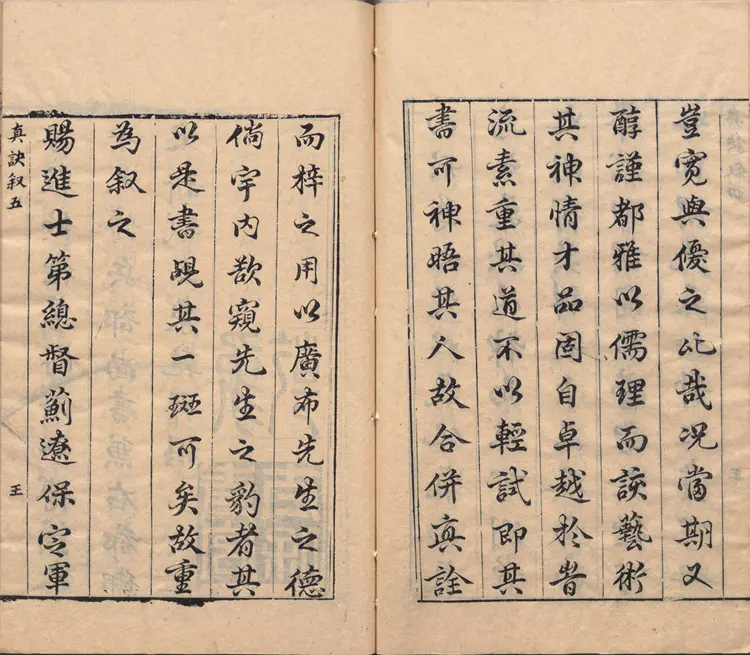 豈寛與優之比哉况當期又
醇謹都雅以儒理而談藝術
其神情才品固自卓越於昔
流素重其道不以輕試即其
書可神晤其人故合併真詮
而梓之用以廣布先生之德
倘宇内欲窺先生之豹者其
以是書覘其一斑可矣故重
為叙之
賜進士第總督薊遼保定軍
真訣叙五